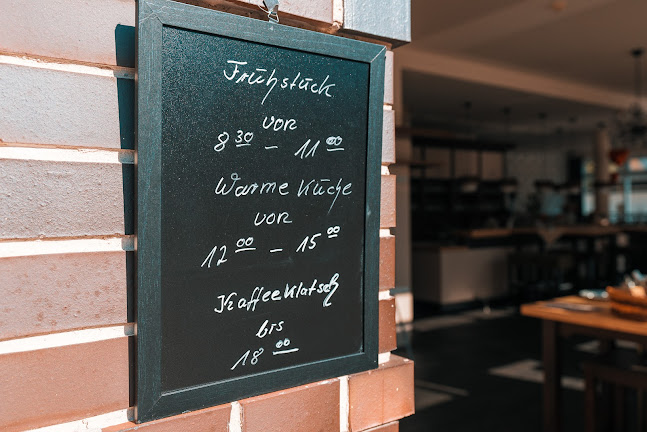 Frühstück
von
8 30 - 11 00
Warme Küche
von
12 00 - 15 00
Kaffeeklatsch
bis
18 00